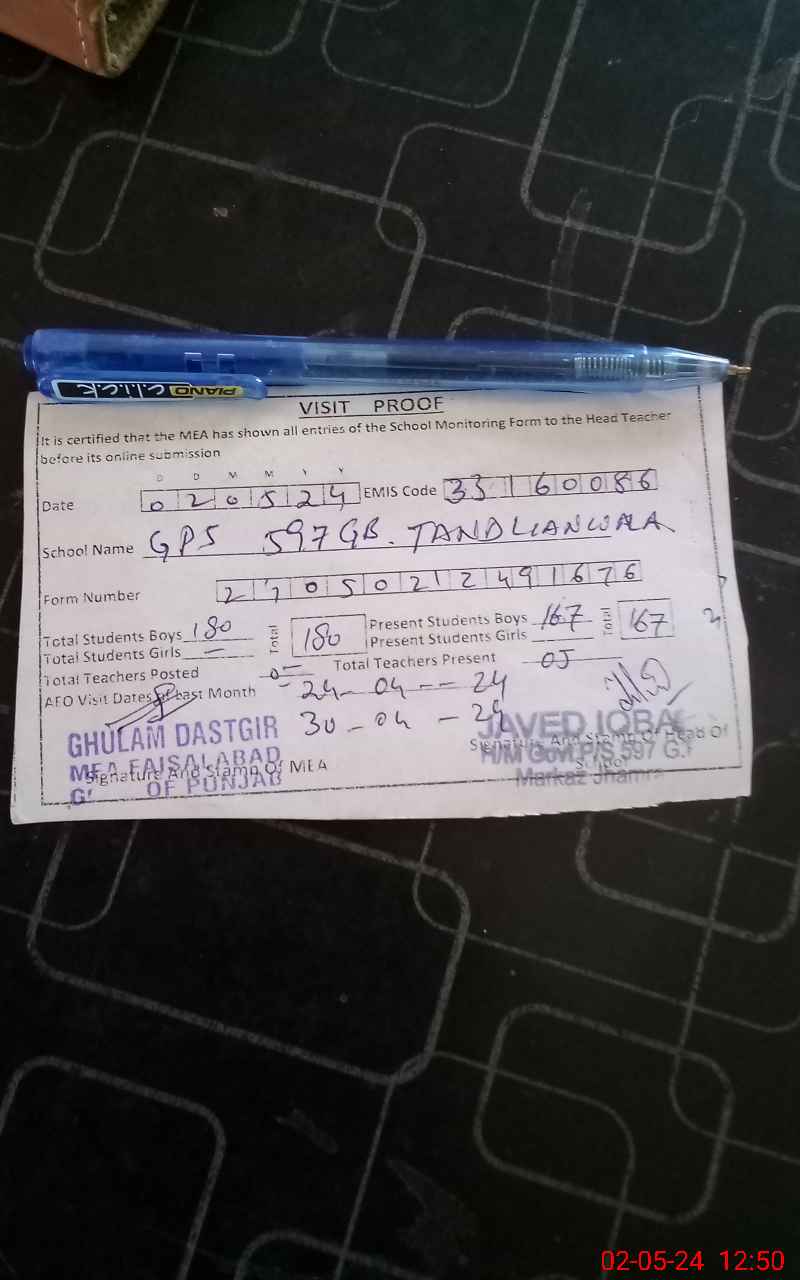 PIANO c.l.i.c.k
VISIT PROOF
It is certified that the MEA has shown all entries of the School Monitoring Form to the Head Teacher
before its online submission
D D M M Y Y
Date 020524 EMIS Code 33160086
School Name GPS 597 GB. TANDLIANWALA
Form Number 270502124 91676
Total Students Boys 180 Total 180 Present Students Boys 167 Total 167
Total Students Girls — Present Students Girls
Total Teachers Posted 05 Total Teachers Present 05
AEO Visit Dates of Last Month 24-04--24
30-04-24
GHULAM DASTGIR
MEA FAISALABAD
OF PUNJAB
Signature And Stamp Of MEA
JAVED IQBAL
Signature And Stamp Of Head Of
School
H/M Govt P/S 597 G.
Markaz Jhamra
02-05-24 12:50